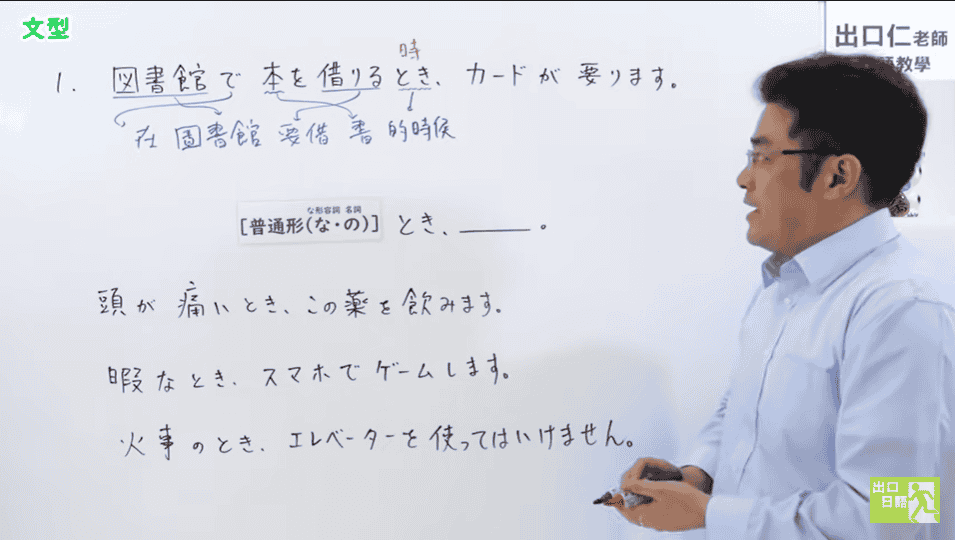 文型
出口仁老師
教學
時
1. 図書館で本を借りるとき、カードが要ります。
在圖書館要借書的時候
な形容詞 名詞
[普通形(な・の)]とき、____。
頭が痛いとき、この薬を飲みます。
暇なとき、スマホでゲームします。
火事のとき、エレベーターを使ってはいけません。
出口
日語